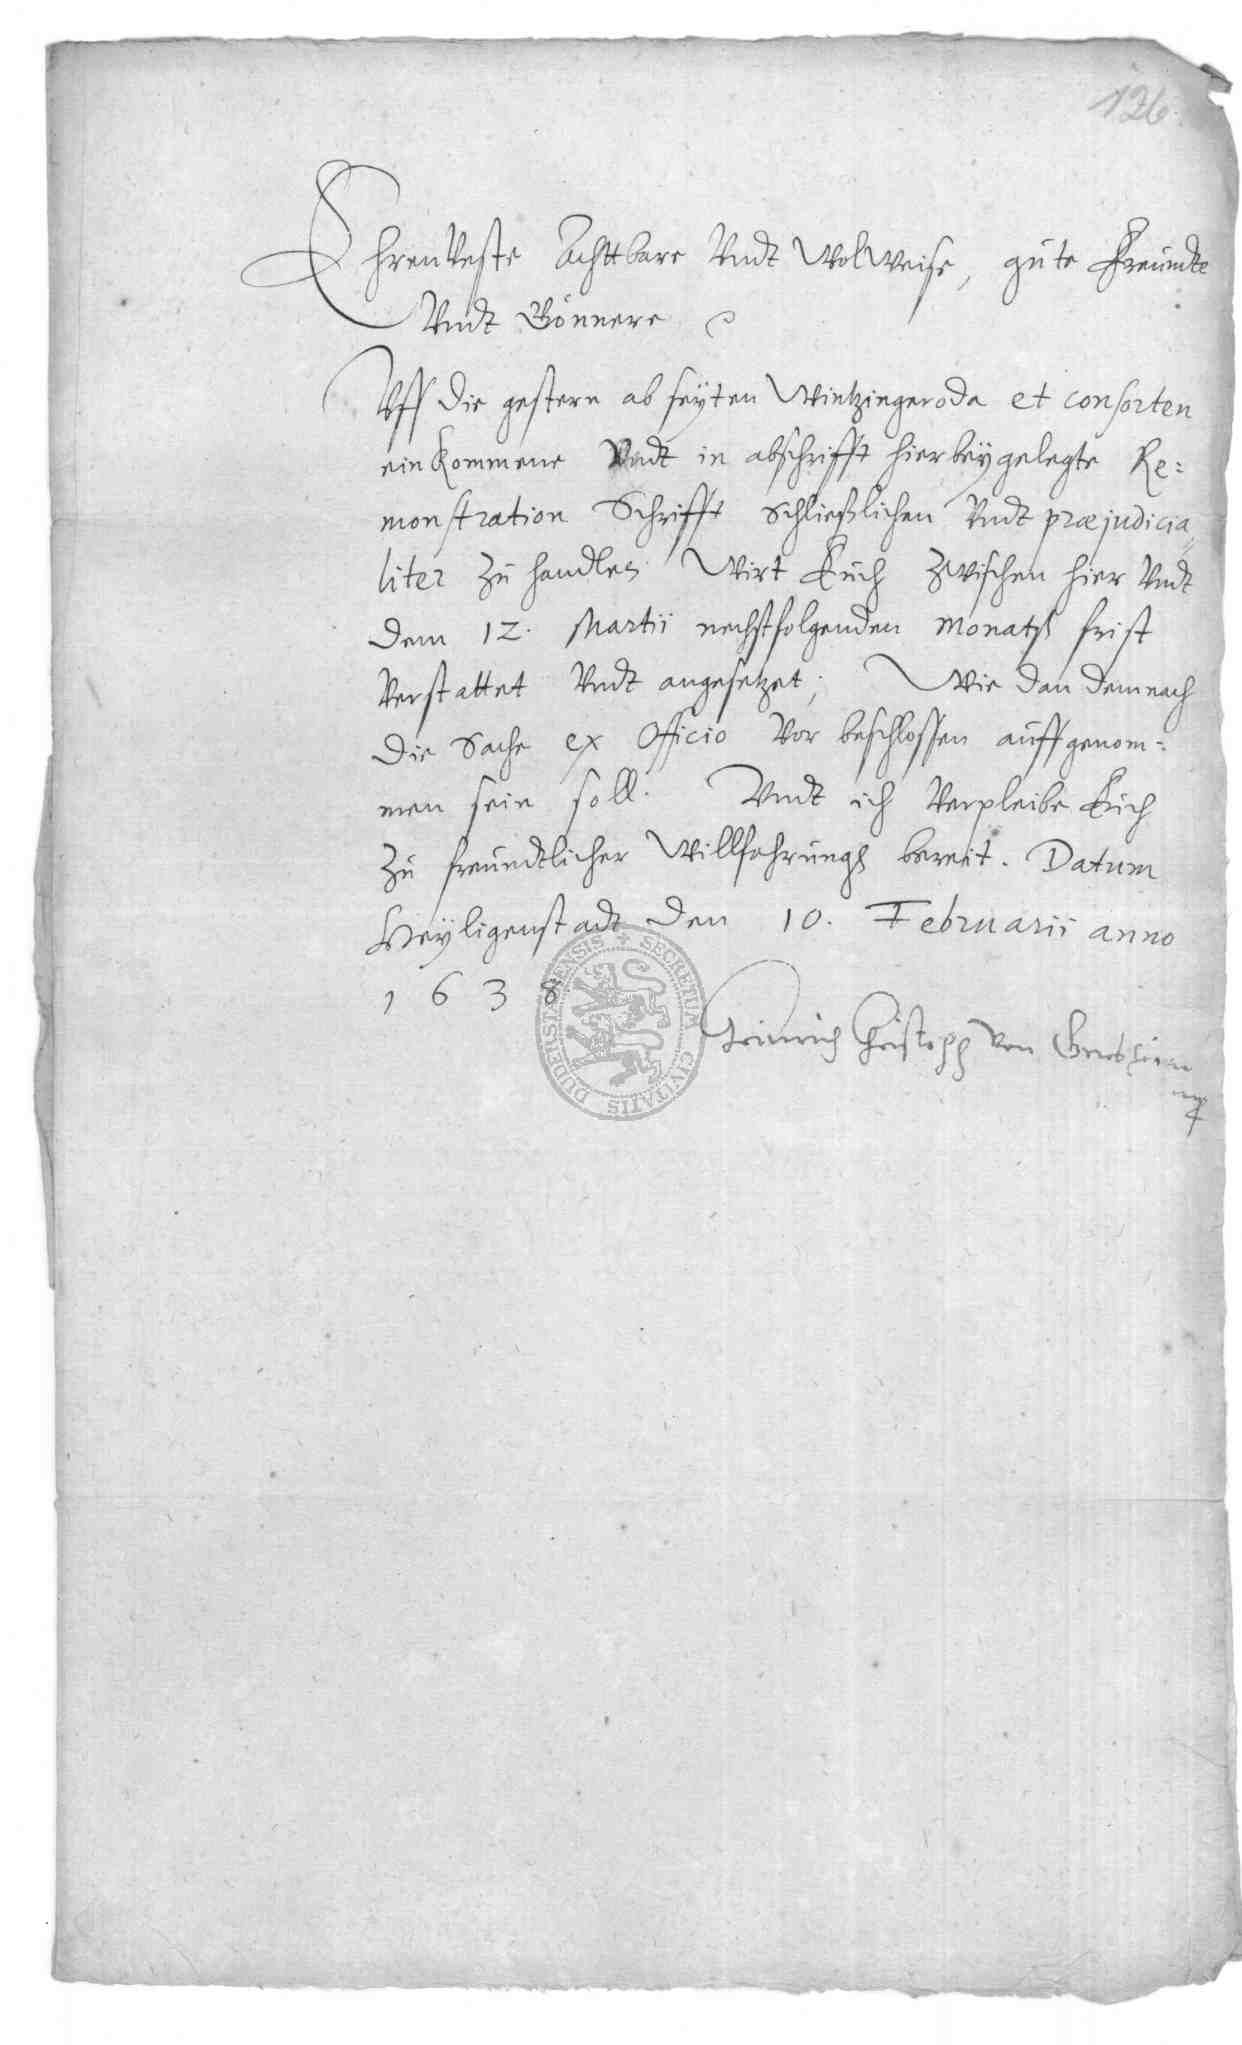 126.
Ehrenveste Achttbare Vndt Wolweise, gúte Freúndte
Vndt Gönnere
Vff die gestern ab seÿten Wintzingeroda et consorten
einkommene Vndt in abschrifft hierbeÿgelegte Re=
monstration Schrifft Schließlichen Vndt præjudicia„
liter Zú handlen. Wirt Eúch Zwischen hier Vndt
dem 12. Martii nechstfolgenden Monatß frist
Verstattet Vndt angesetzet, Wie dan demnach
die Sache ex Officio Vor beschlossen aúffgenom=
men sein soll. Vndt ich Verpleibe Eúch
Zú freúndtlicher Willfahrúng bereit. Datum
Heÿligenstadt den 10. Februarii anno
1638
Heinrich Christoph von
mp
SECRETUM CIVITATIS DUDERSTADENSIS